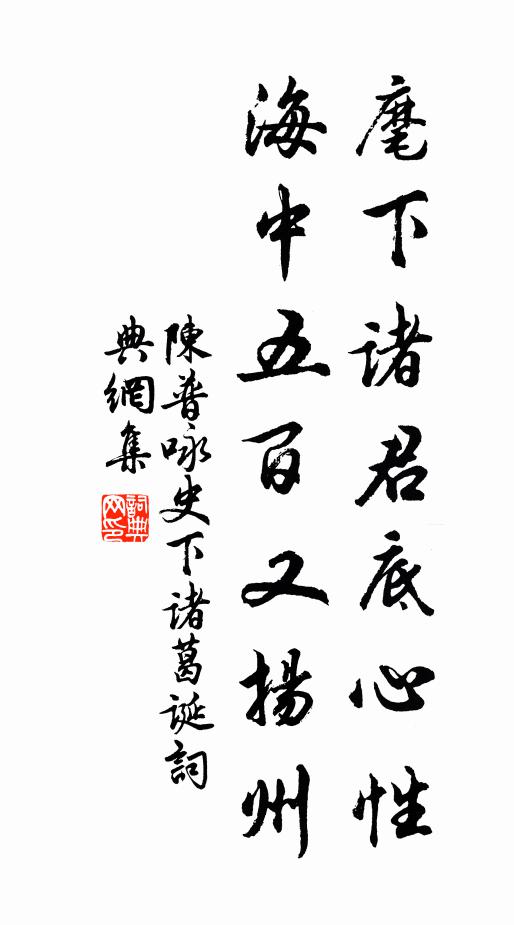 麾下諸君底心性
海中五百又揚州
陳普咏史下諸葛誕詞
典網集
詞典網印